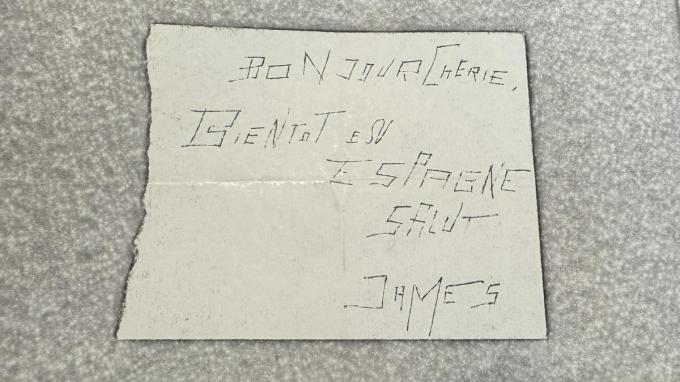 BONJOUR CHERIE,
BIENTOT EN
ESPAGNE
SALUT
JAMES